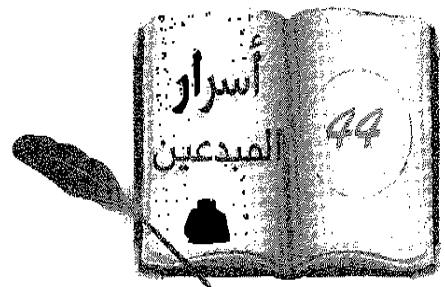 أسرار
المبدعين
44